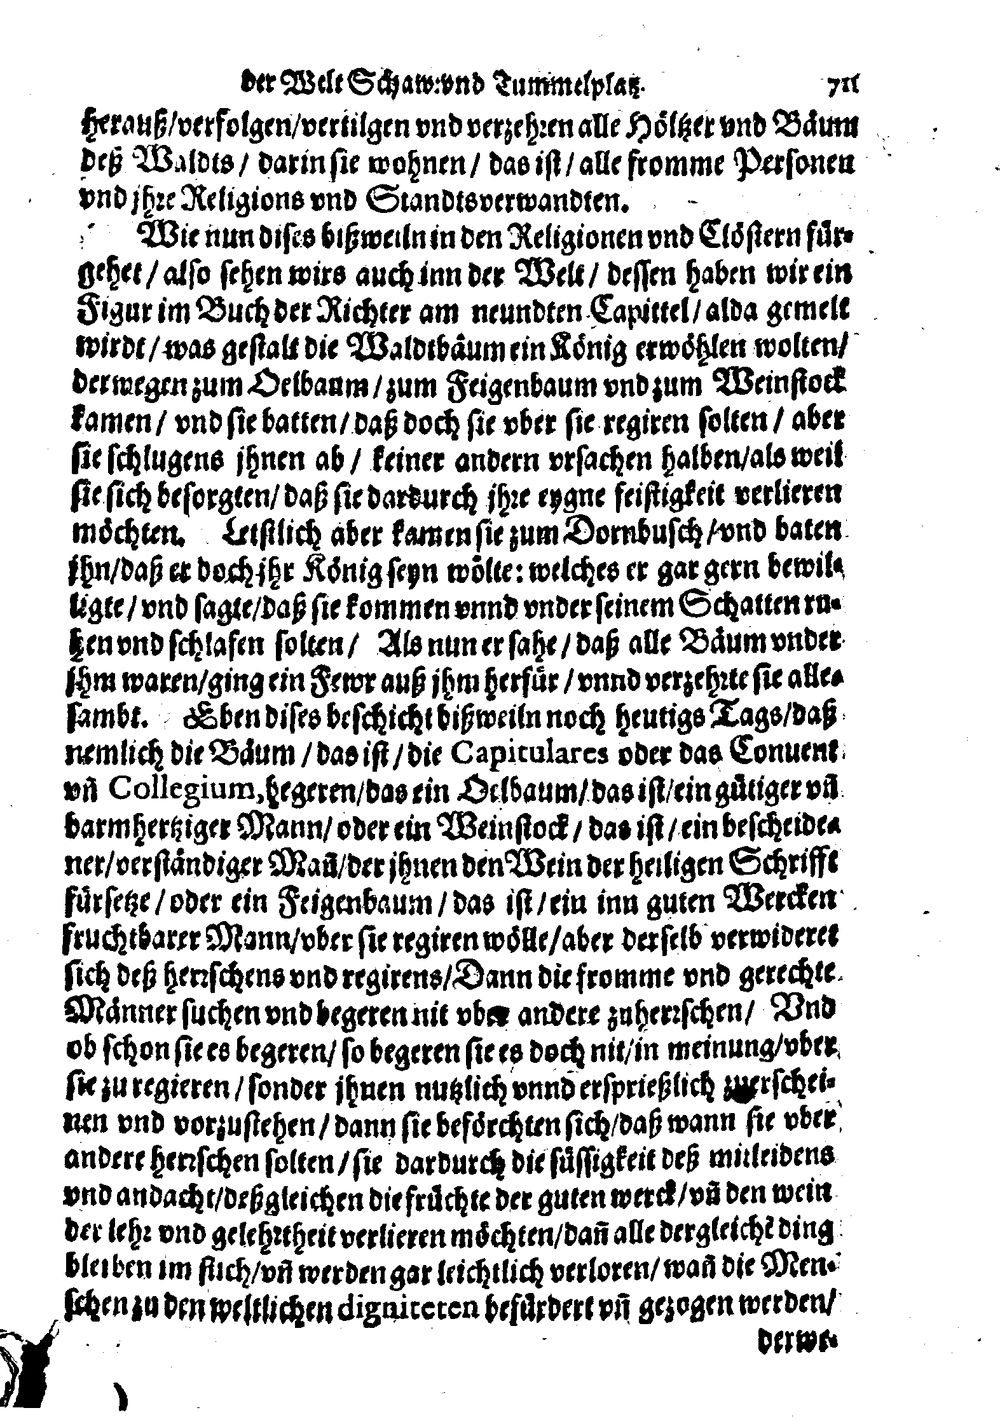 der Welt Schaw: vnd Tummelplatz. 711
herauß/verfolgen/vertilgen vnd verzehren alle Höltzer vnd Bäum
deß Waldts/ darin sie wohnen/ das ist/ alle fromme Personen
vnd jhre Religions vnd Standtsverwandten.
Wie nun dises bißweiln in den Religionen vnd Clöstern für-
gehet/ also sehen wirs auch inn der Welt/ dessen haben wir ein
Figur im Buch der Richter am neundten Capittel/ alda gemelt
wirdt/ was gestalt die Waldtbäum ein König erwöhlen wolten/
derwegen zum Oelbaum/ zum Feigenbaum vnd zum Weinstock
kamen/ vnd sie batten/ daß doch sie vber sie regiren solten/ aber
sie schlugens jhnen ab/ keiner andern vrsachen halben/ als weil
sie sich besorgten/ daß sie dardurch jhre eygne feistigkeit verlieren
möchten. Letstlich aber kamen sie zum Dornbusch/ vnd baten
jhn/ daß er doch jhr König seyn wölte: welches er gar gern bewil-
ligte/ vnd sagte/ daß sie kommen vnnd vnder seinem Schatten ru-
hen vnd schlafen solten/ Als nun er sahe/ daß alle Bäum vnder
jhm waren/ ging ein Fewr auß jhm herfür/ vnnd verzehrte sie alle-
sambt. Eben dises beschicht bißweiln noch heutigs Tags/ daß
nemlich die Bäum/ das ist/ die Capitulares oder das Conuent
vñ Collegium, begeren/ das ein Oelbaum/ das ist/ ein gütiger vñ
barmhertziger Mann/ oder ein Weinstock/ das ist/ ein bescheide-
ner/ verständiger Mañ/ der jhnen den Wein der heiligen Schrifft
fürsetze/ oder ein Feigenbaum/ das ist/ ein inn guten Wercken
fruchtbarer Mann/ vber sie regiren wölle/ aber derselb verwideret
sich deß herrschens vnd regirens/ Dann die fromme vnd gerechte
Männer suchen vnd begeren nit vber andere zuherrschen/ Vnd
ob schon sie es begeren/ so begeren sie es doch nit/ in meinung/ vber
sie zu regieren/ sonder jhnen nutzlich vnnd ersprießlich zuerschei-
nen vnd vorzustehen/ dann sie beförchten sich/ daß wann sie vber
andere herrschen solten/ sie dardurch die süssigkeit deß mitleidens
vnd andacht/ deßgleichen die früchte der guten werck/ vñ den wein
der lehr vnd gelehrtheit verlieren möchten/ dañ alle dergleichē ding
bleiben im stich/ vñ werden gar leichtlich verloren/ wañ die Men-
schen zu den weltlichen digniteten befürdert vñ gezogen werden/
derwe-